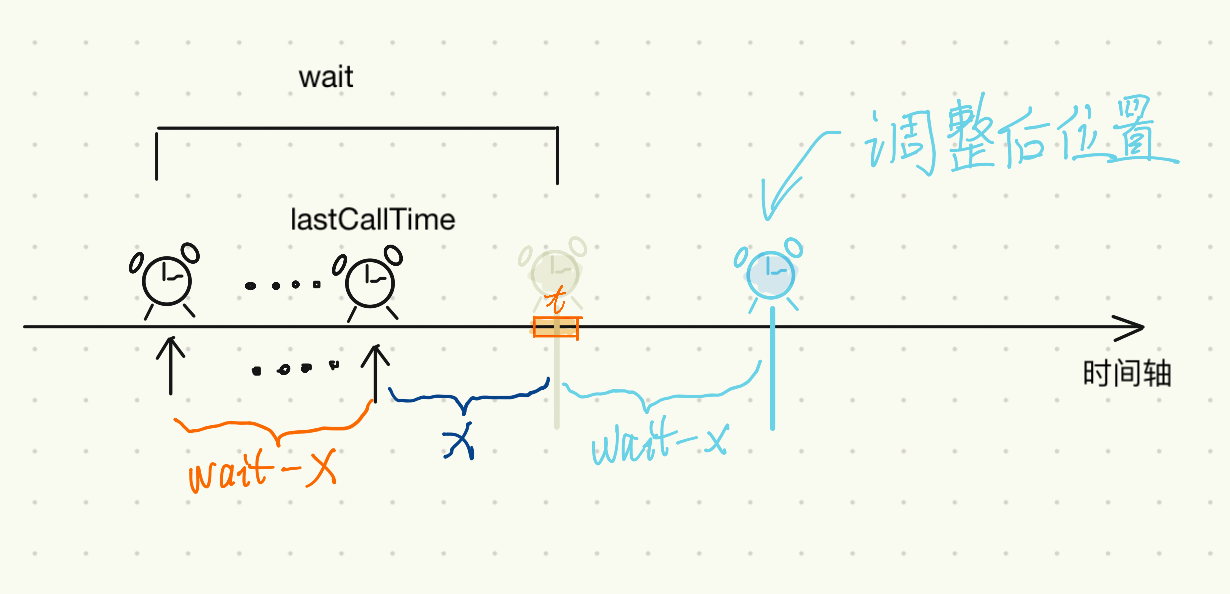 wait
调整后位置
lastCallTime
t
时间轴
x
wait-x
wait-x